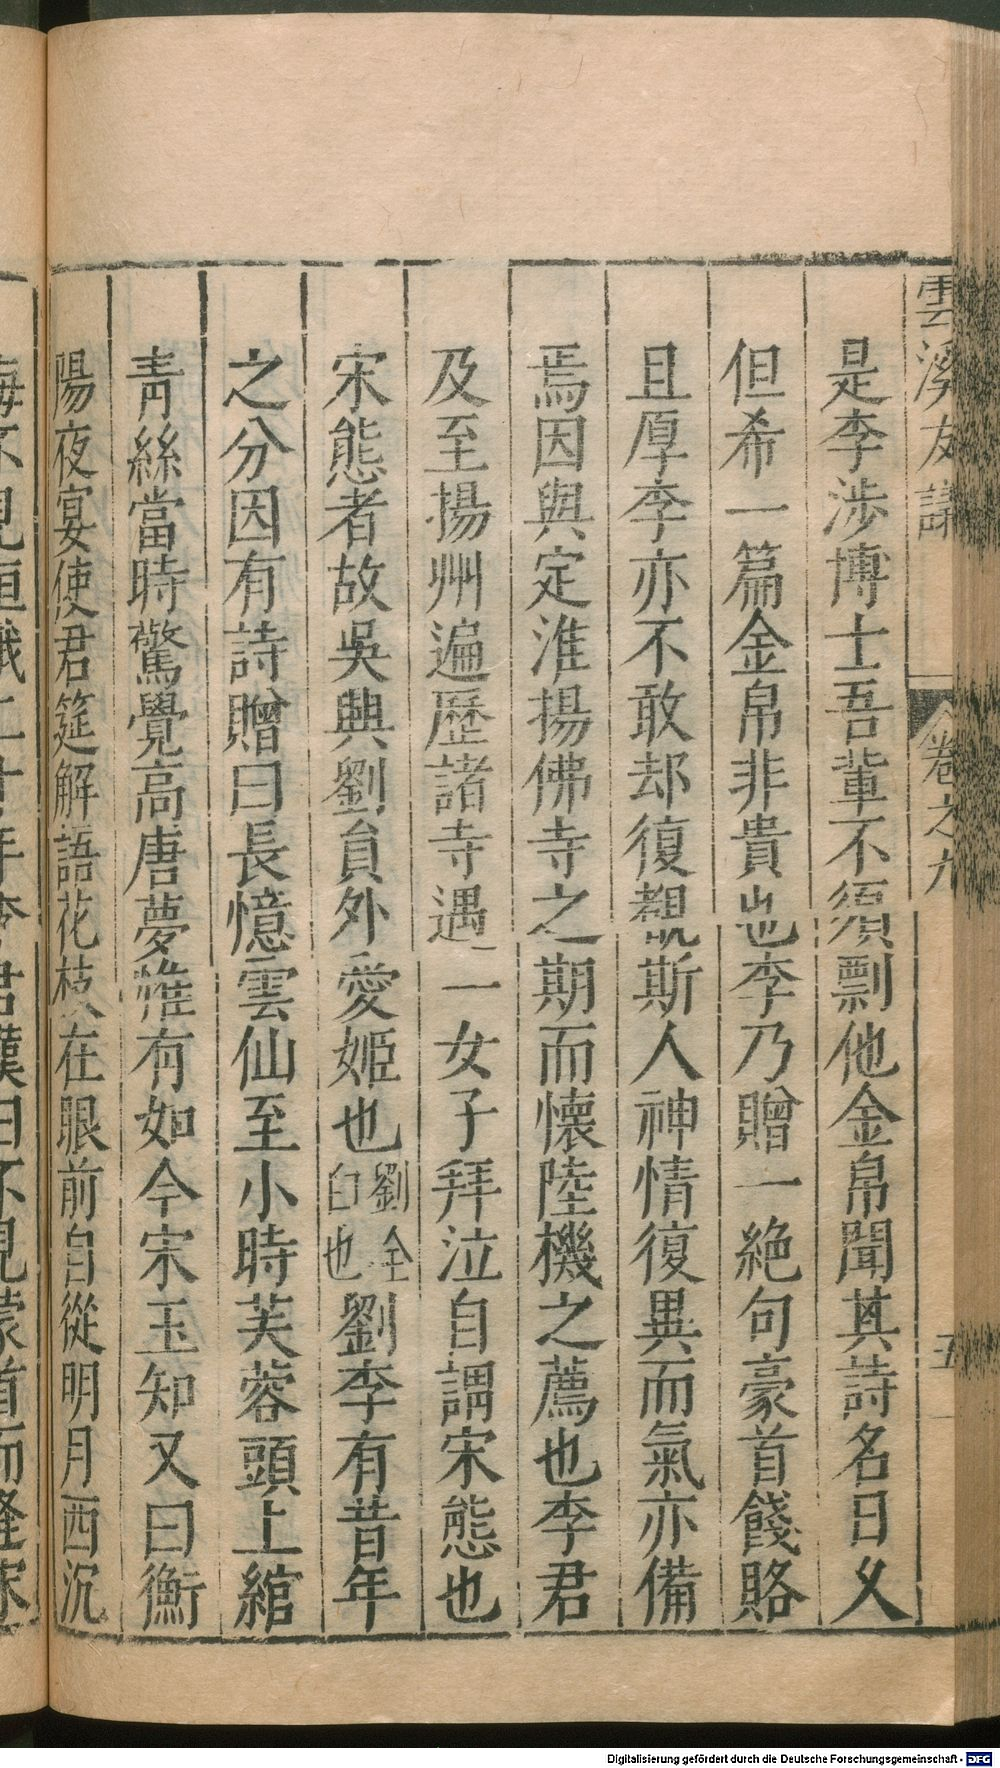 雲溪友議
卷之九
五
是李涉博士吾輩不須剽他金帛聞其詩名日乆
但希一篇金帛非貴也李乃贈一絶句豪首餞賂
且厚李亦不敢却復覩斯人神情復異而氣亦備
焉因與定淮揚佛寺之期而懷陸機之薦也李君
及至揚州遍歷諸寺遇一女子拜泣自謂宋態也
宋態者故吳興劉員外愛姬也劉全白也劉李有昔年
之分因有詩贈曰長憶雲仙至小時芙蓉頭上綰
青絲當時驚覺高唐夢惟有如今宋玉知又曰衡
陽夜宴使君筵解語花枝在眼前自從明月西沉
海不見姮娥二十年李君嘆曰不見豪首而逢宋
Digitalisierung gefördert durch die Deutsche Forschungsgemeinschaft - DFG